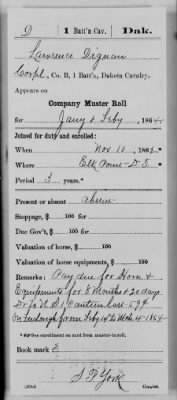 D | 1 Batt'n Cav. | Dak.
Lawrence Dignan
Corpl, Co. B, 1 Batt'n, Dakota Cavalry.
Appears on
Company Muster Roll
for Jany & Feby, 1864.
Joined for duty and enrolled:
When Nov 10, 186
Where Elk Point D.T.
Period 3 years.*
Present or absent absent
Stoppage, $ 100 for
Due Gov't, $ 100 for
Valuation of horse, $ 100
Valuation of horse equipments, $ 100
Remarks: Pay due for Horse &
Equipments for 8 Months & 20 days
Dr. To U.S. 1 Canteen Cost 59¢
On Furlough from Feby 4 to Mch 4 1864
* See enrollment on card from muster-in roll.
Book mark:
S F York
Copyist.